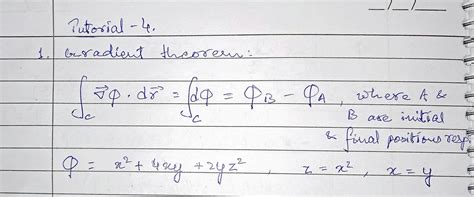 Tutorial-4.
1. Gradient theorem:
∫_C ∇⃗φ · dr⃗ = ∫_C dφ = φ_B − φ_A , where A &
B are initial
& final positions resp.
φ = x² + 4xy + 2yz² , z = x² , x = y